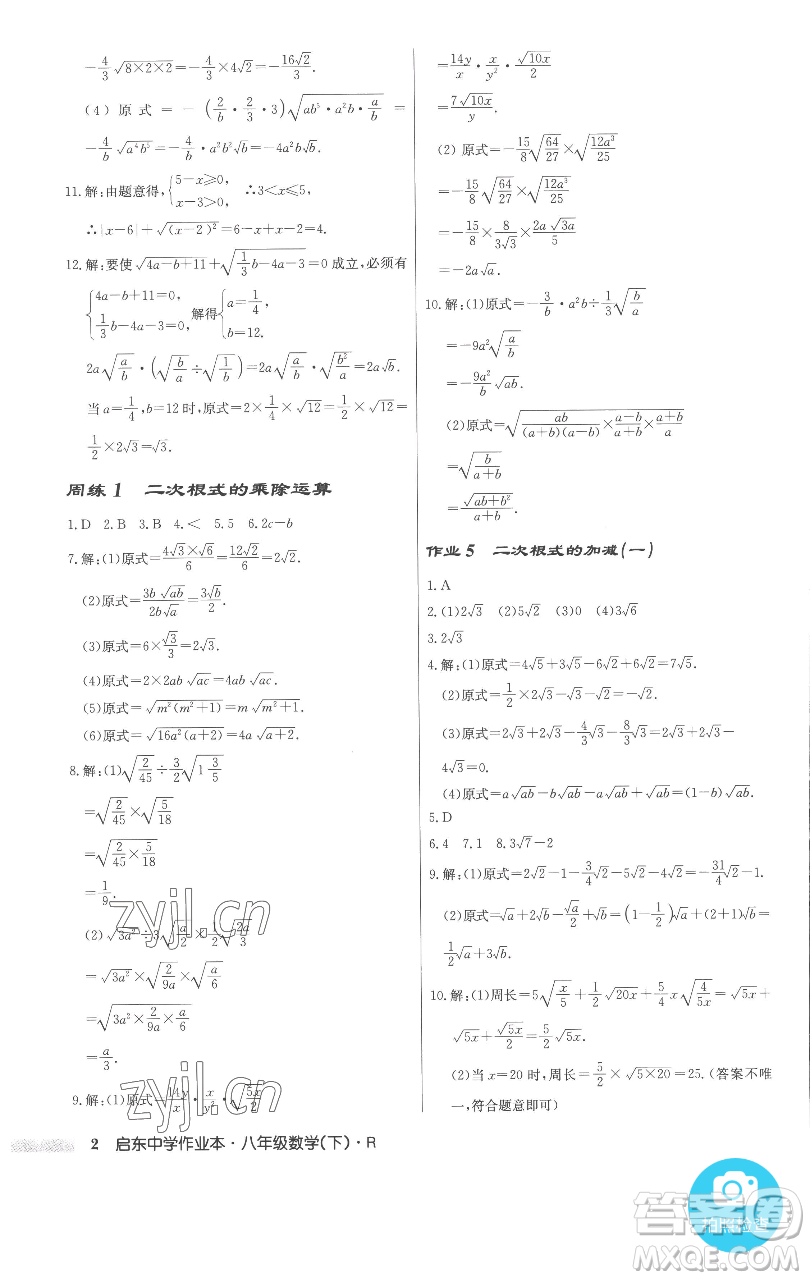 -4/3√(8×2×2)=-4/3×4√2=-16√2/3.
(4)原式=-(2/b·2/3·3)√(ab⁵·a²b·a/b)=
-4/b√(a⁴b⁵)=-4/b·a²b²√b=-4a²b√b.
11.解:由题意得,{5-x≥0, x-3>0, ∴3<x≤5,
∴|x-6|+√((x-2)²)=6-x+x-2=4.
12.解:要使√(4a-b+11)+√(1/3b-4a-3)=0成立,必须有
{4a-b+11=0, 1/3b-4a-3=0, 解得{a=1/4, b=12.
2a√(a/b)·(√(b/a)÷√(1/b))=2a√(a/b)·√(b²/a)=2a√b.
当a=1/4,b=12时,原式=2×1/4×√12=1/2×√12=
1/2×2√3=√3.
周练1 二次根式的乘除运算
1.D 2.B 3.B 4.< 5.5 6.2c-b
7.解:(1)原式=4√3×√6/6=12√2/6=2√2.
(2)原式=3b√ab/2b√a=3√b/2.
(3)原式=6×√3/3=2√3.
(4)原式=2×2ab√ac=4ab√ac.
(5)原式=√(m²(m²+1))=m√(m²+1).
(6)原式=√(16a²(a+2))=4a√(a+2).
8.解:(1)√(2/45)÷3/2√(1 3/5)
=√(2/45)×√(5/18)
=√(2/45×5/18)
=1/9.
(2)√(3a²)÷3√(a/2)×1/2√(2a/3)
=√(3a²)×√(2/9a)×√(a/6)
=√(3a²×2/9a×a/6)
=a/3.
9.解:(1)原式=14y/x·x/y²·√(5x/2)
=14y/x·x/y²·√10x/2
=7√10x/y.
(2)原式=-15/8√(64/27)×√(12a³/25)
=-15/8√(64/27)×√(12a³/25)
=-15/8×8/3√3×2a√3a/5
=-2a√a.
10.解:(1)原式=-3/b·a²b÷1/3√(b/a)
=-9a²√(a/b)
=-9a²/b√ab.
(2)原式=√(ab/(a+b)(a-b)×a-b/a+b×a+b/a)
=√(b/a+b)
=√(ab+b²)/a+b.
作业5 二次根式的加减(一)
1.A
2.(1)2√3 (2)5√2 (3)0 (4)3√6
3.2√3
4.解:(1)原式=4√5+3√5-6√2+6√2=7√5.
(2)原式=1/2×2√3-√3=√3-√3=0.
(3)原式=2√3+2√3-4/3√3-8/3√3=2√3+2√3-
4√3=0.
(4)原式=a√ab-b√ab-a√ab+b√ab=0.
5.D
6.4 7.1 8.3√7-2
9.解:(1)原式=2√2-1-3/4√2-5√2-4√2=-31/4√2-1.
(2)原式=√a+2√b-√a/2+√b=(1-1/2)√a+(2+1)√b=
1/2√a+3√b.
10.解:(1)周长=5√(x/5)+1/2√20x+5/4x√(4/5x)=√5x+
√5x+√5x/2=5/2√5x.
(2)当x=20时,周长=5/2×√(5×20)=25.(答案不唯
一,符合题意即可)
2 启东中学作业本·八年级数学(下)·R
zyjl.cn
zyjl.cn
答案卷
拍照检查
MXQE.COM